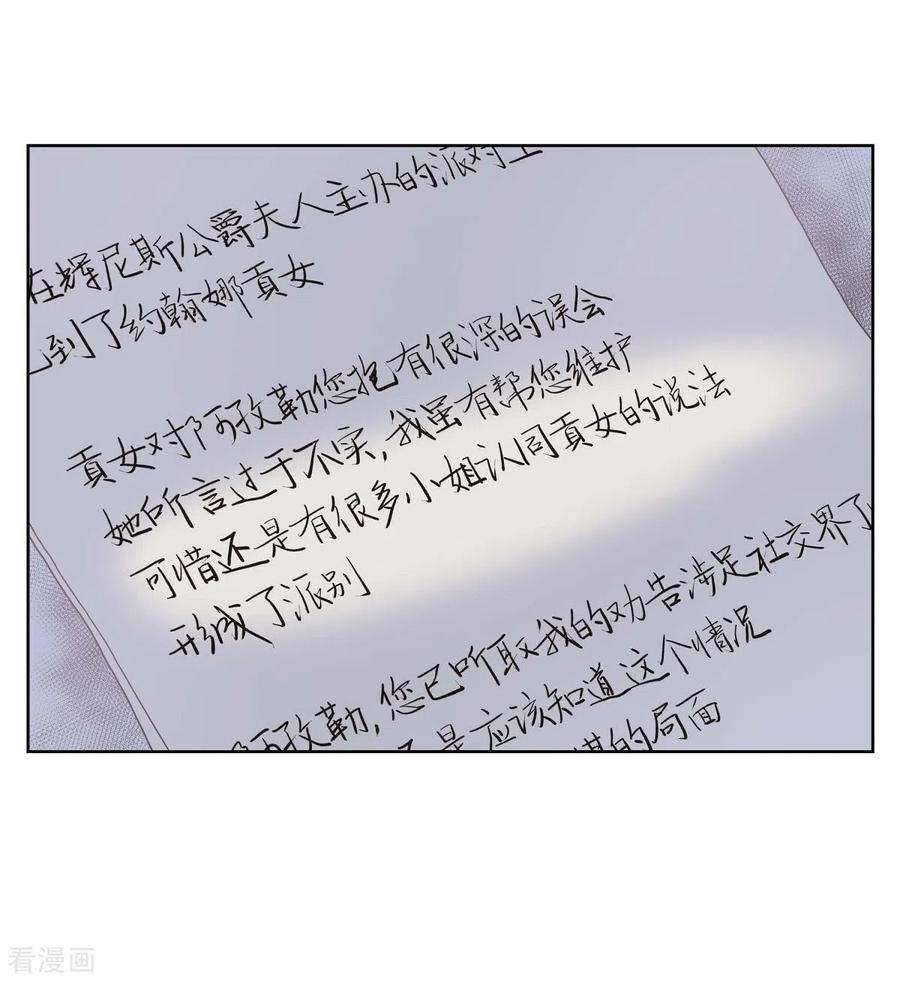 在辉尼斯公爵夫人主办的派对上
到了约翰娜贡女
贡女对阿孜勒您抱有很深的误会
她所言过于不实,我虽有帮您维护
可惜还是有很多小姐认同贡女的说法
形成了派别
阿孜勒,您已听取我的劝告涉足社交界了
是应该知道这个情况
的局面
看漫画